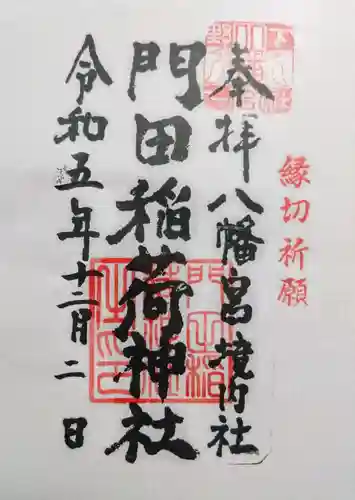 縁切祈願
奉拝八幡宮境内社
門田稲荷神社
令和五年十二月二日